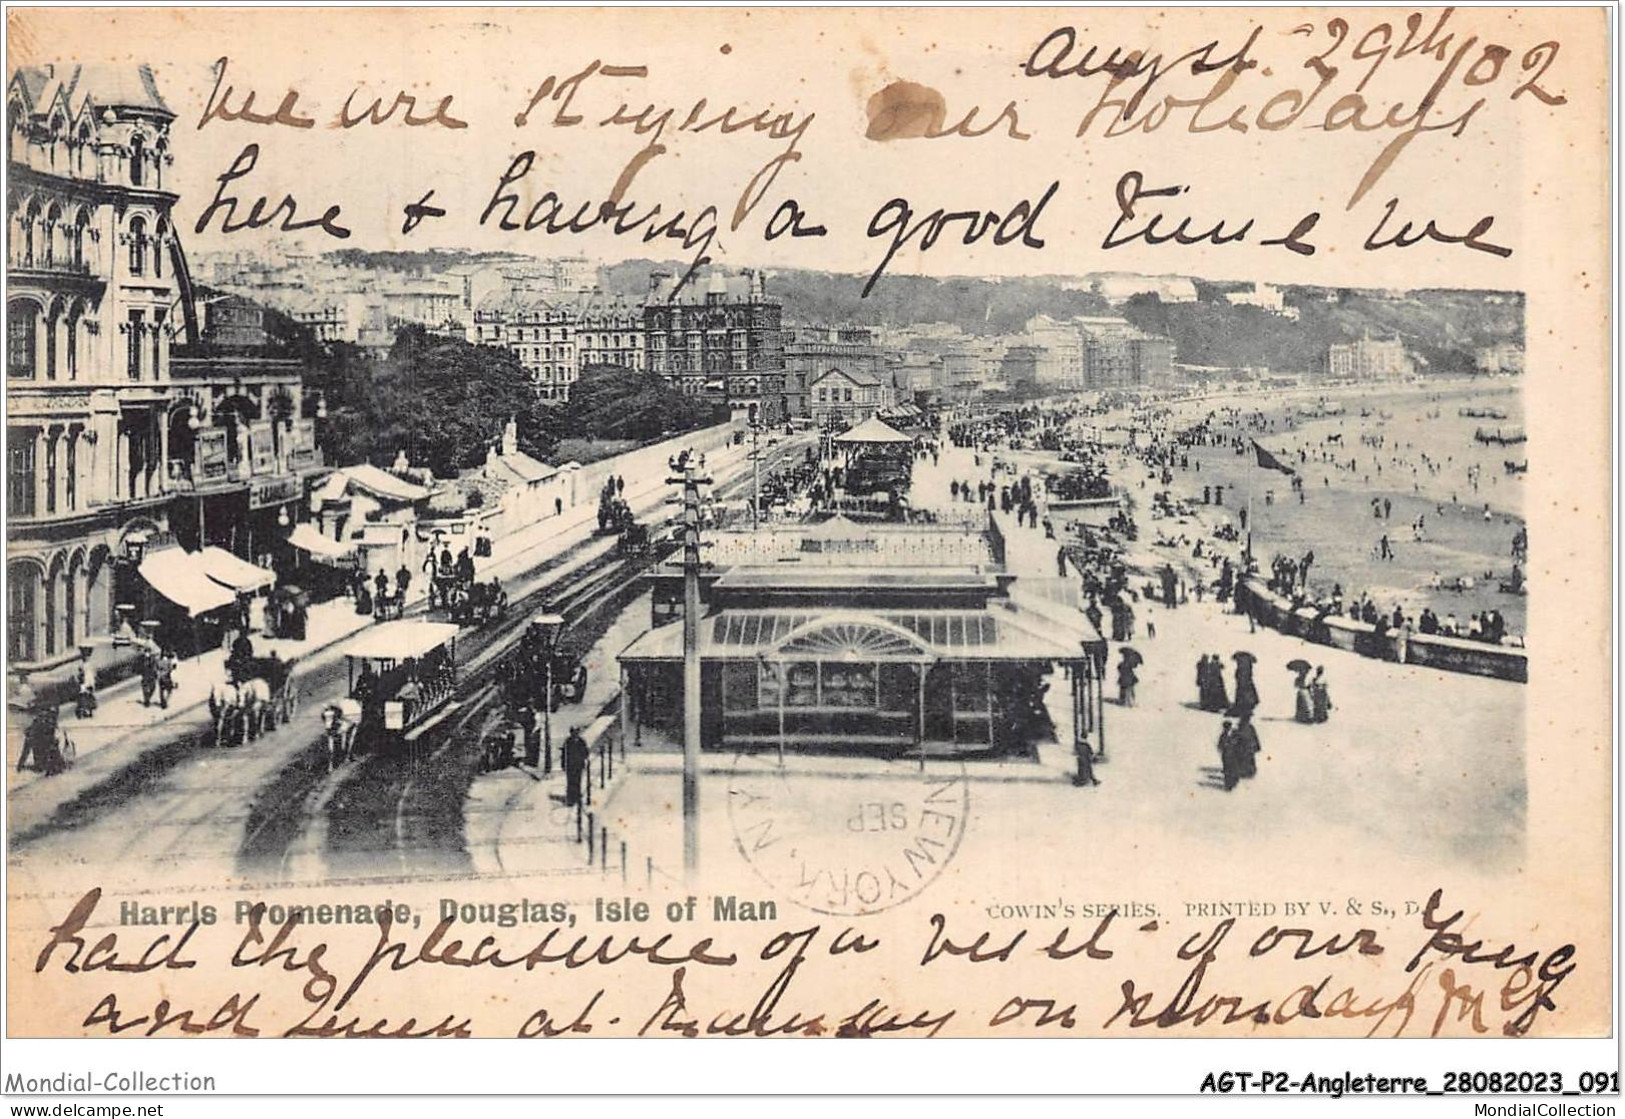 August 29th/02
We are stying our holidays
here + having a good time we
NEW YORK, N.Y.
SEP
Harris Promenade, Douglas, Isle of Man
COWIN'S SERIES. PRINTED BY V. & S., D.
had the pleasure of a viset of our King
and Queen at Ramsay on Monday
Mondial-Collection
AGT-P2-Angleterre_28082023_091
www.delcampe.net
MondialCollection